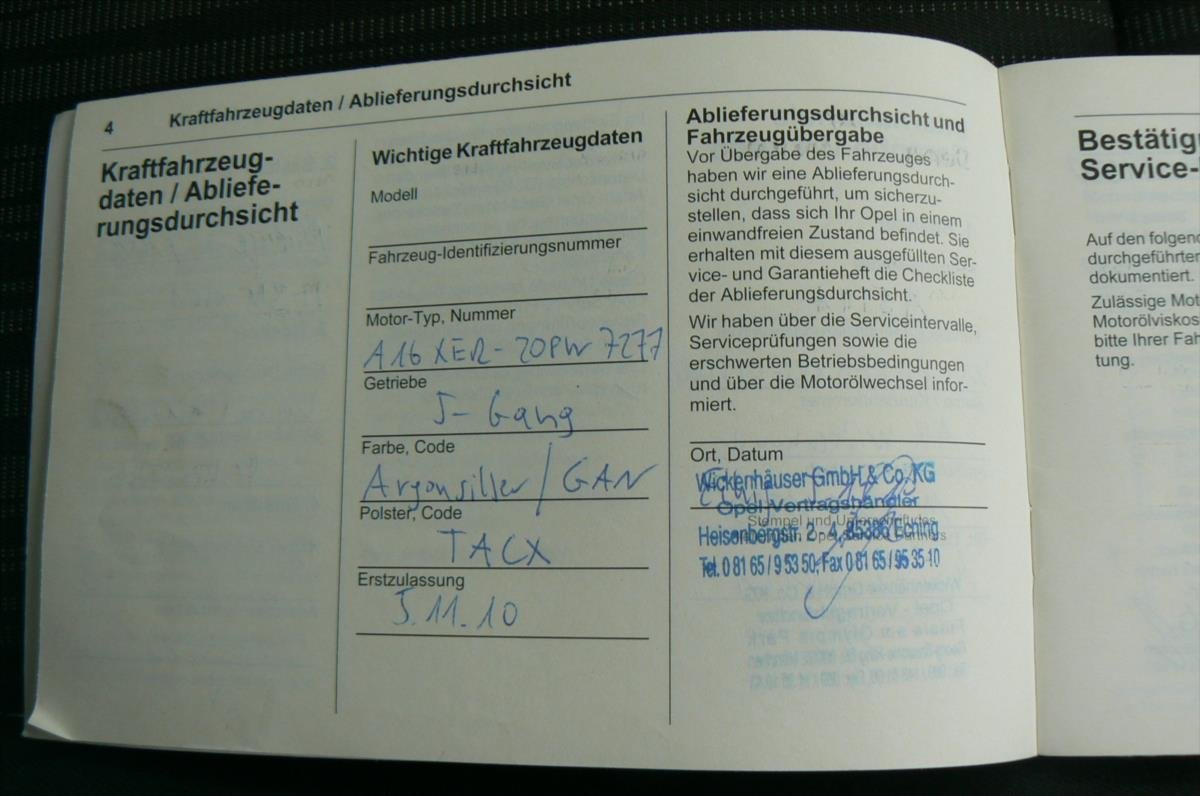 4
Kraftfahrzeugdaten / Ablieferungsdurchsicht
Kraftfahrzeug-
daten / Abliefe-
rungsdurchsicht
Wichtige Kraftfahrzeugdaten
Modell
Fahrzeug-Identifizierungsnummer
Motor-Typ, Nummer
A16 XER - 20PW 7277
Getriebe
5-Gang
Farbe, Code
Argonsilber / GAN
Polster, Code
TACX
Erstzulassung
5.11.10
Ablieferungsdurchsicht und
Fahrzeugübergabe
Vor Übergabe des Fahrzeuges
haben wir eine Ablieferungsdurch-
sicht durchgeführt, um sicherzu-
stellen, dass sich Ihr Opel in einem
einwandfreien Zustand befindet. Sie
erhalten mit diesem ausgefüllten Ser-
vice- und Garantieheft die Checkliste
der Ablieferungsdurchsicht.
Wir haben über die Serviceintervalle,
Serviceprüfungen sowie die
erschwerten Betriebsbedingungen
und über die Motorölwechsel infor-
miert.
Ort, Datum
Wickenhäuser GmbH & Co. KG
Opel-Vertragshändler
Stempel und Unterschrift des
Heisenbergstr. 2 - 4, 85386 Eching
Tel. 0 81 65 / 9 53 50, Fax 0 81 65 / 95 35 10
Bestätig
Service-
Auf den folgend
durchgeführten
dokumentiert.
Zulässige Mot
Motorölviskos
bitte Ihrer Fah
tung.